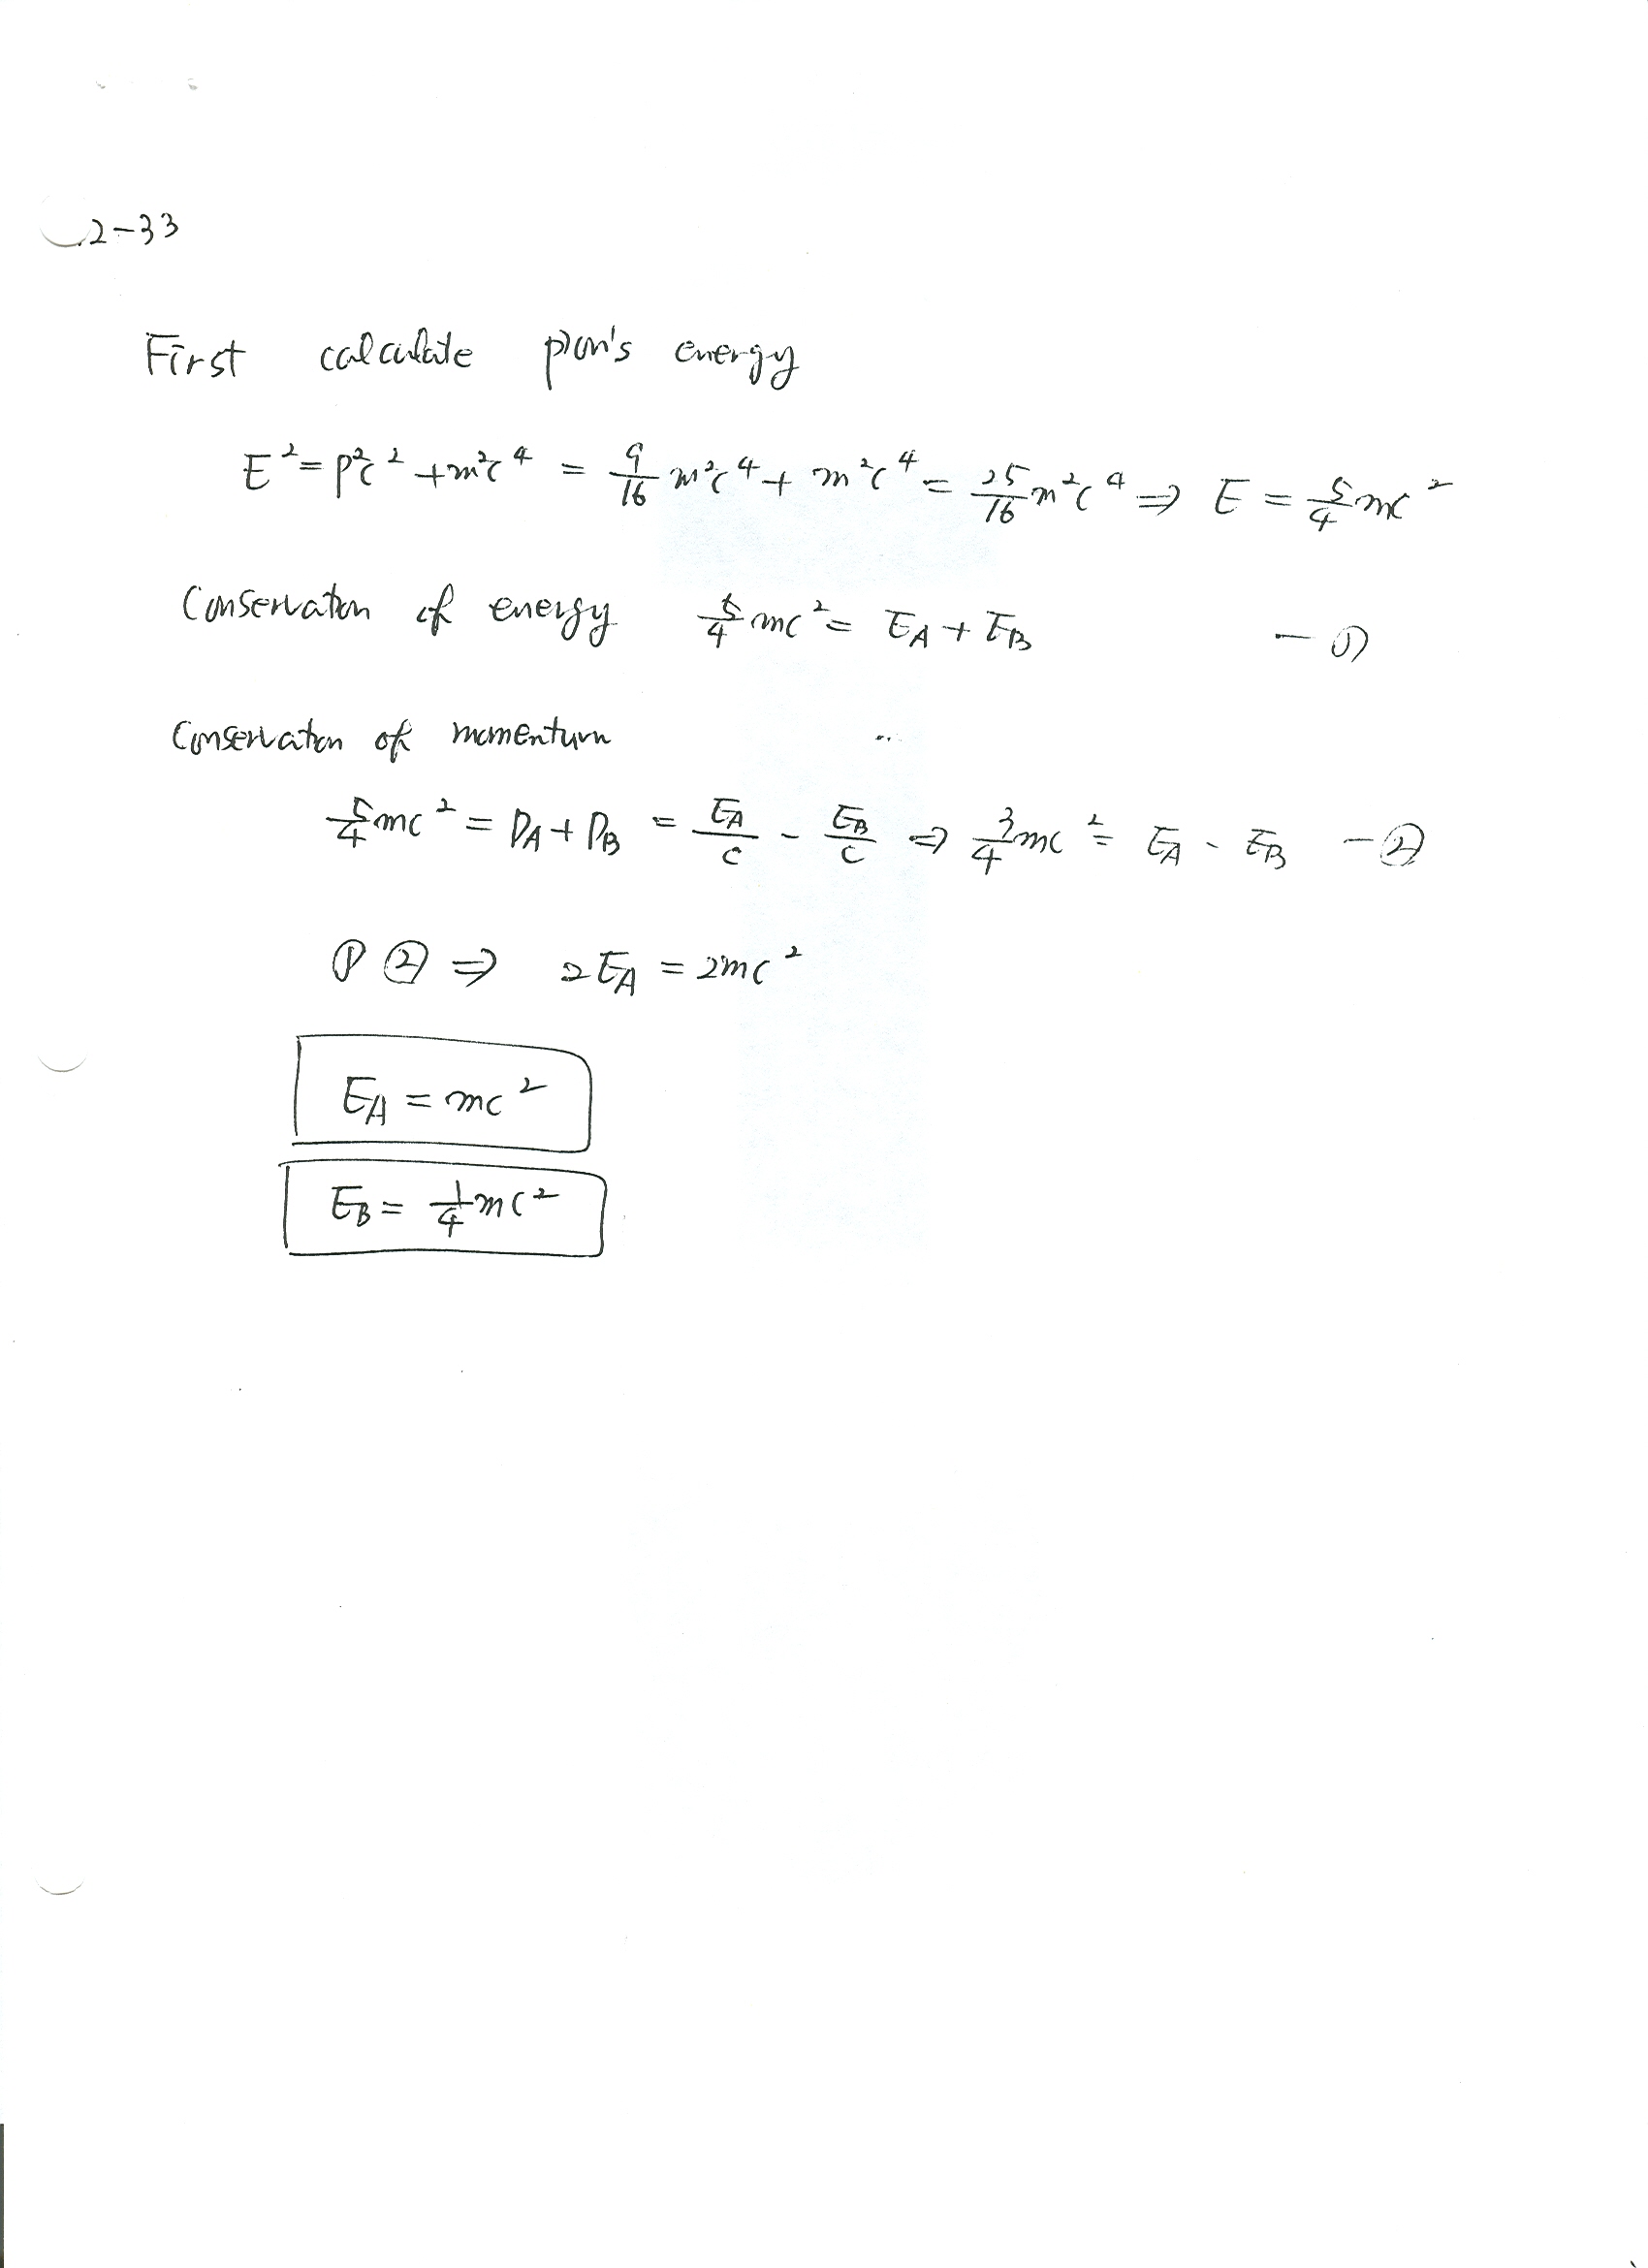 2-33
First calculate pion's energy
E² = p²c² + m²c⁴ = 9/16 m²c⁴ + m²c⁴ = 25/16 m²c⁴ ⇒ E = 5/4 mc²
Conservation of energy 5/4 mc² = E_A + E_B - ①
Conservation of momentum
5/4 mc² = P_A + P_B = E_A/c - E_B/c ⇒ 3/4 mc² = E_A - E_B - ②
① ② ⇒ 2E_A = 2mc²
E_A = mc²
E_B = 1/4 mc²